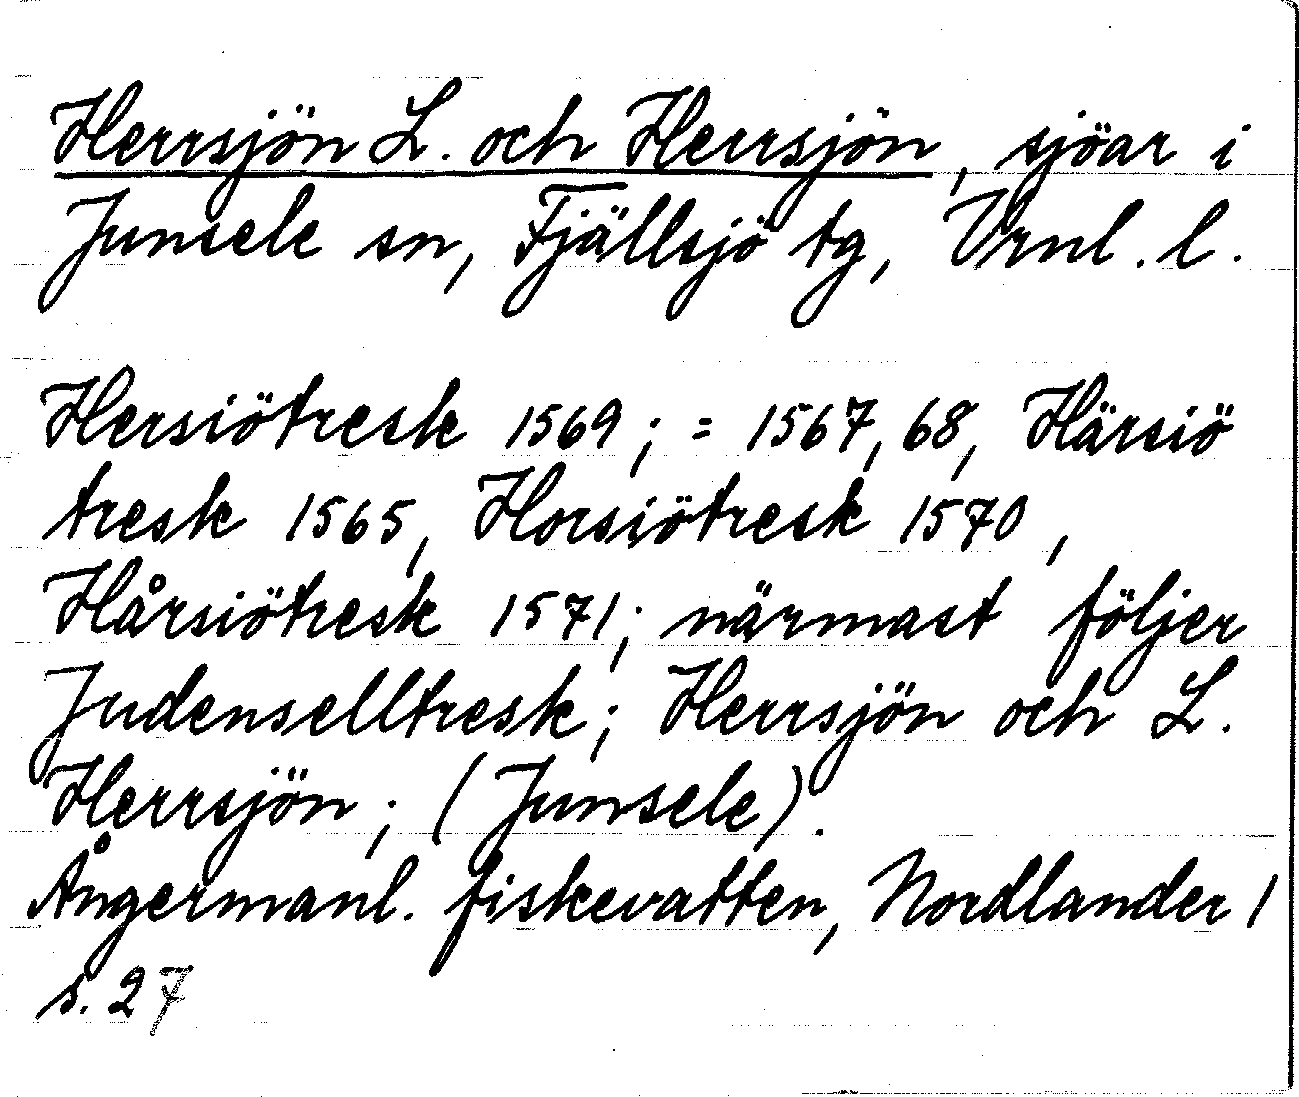 Herrsjön L. och Herrsjön, sjöar i
Junsele sn, Fjällsjö tg, Vrnl. l.
Hersiötresk 1569; = 1567, 68, Härsiö
tresk 1565, Horsiötresk 1570,
Hårsiötresk 1571; närmast följer
Judenselltresk; Herrsjön och L.
Herrsjön; (Junsele).
Ångermanl. fiskevatten, Nordlander 1
s. 27